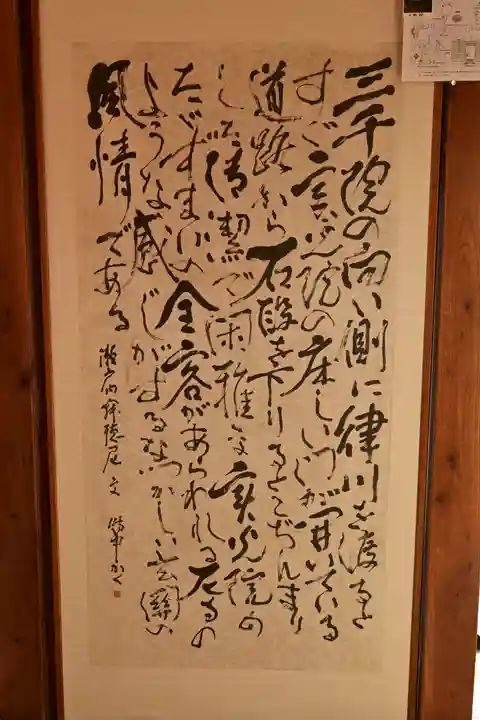 三千院の向い側に律川を渡ると
すぐ実光院の床しい門が開いている
道路から石段を下りるとこぢんまり
した清潔で閑雅な実光院の
たゞずまいの全容があらわれる
ような感じがするなつかしい玄関の
風情である 瀬戸内寂聴尼 文 かく